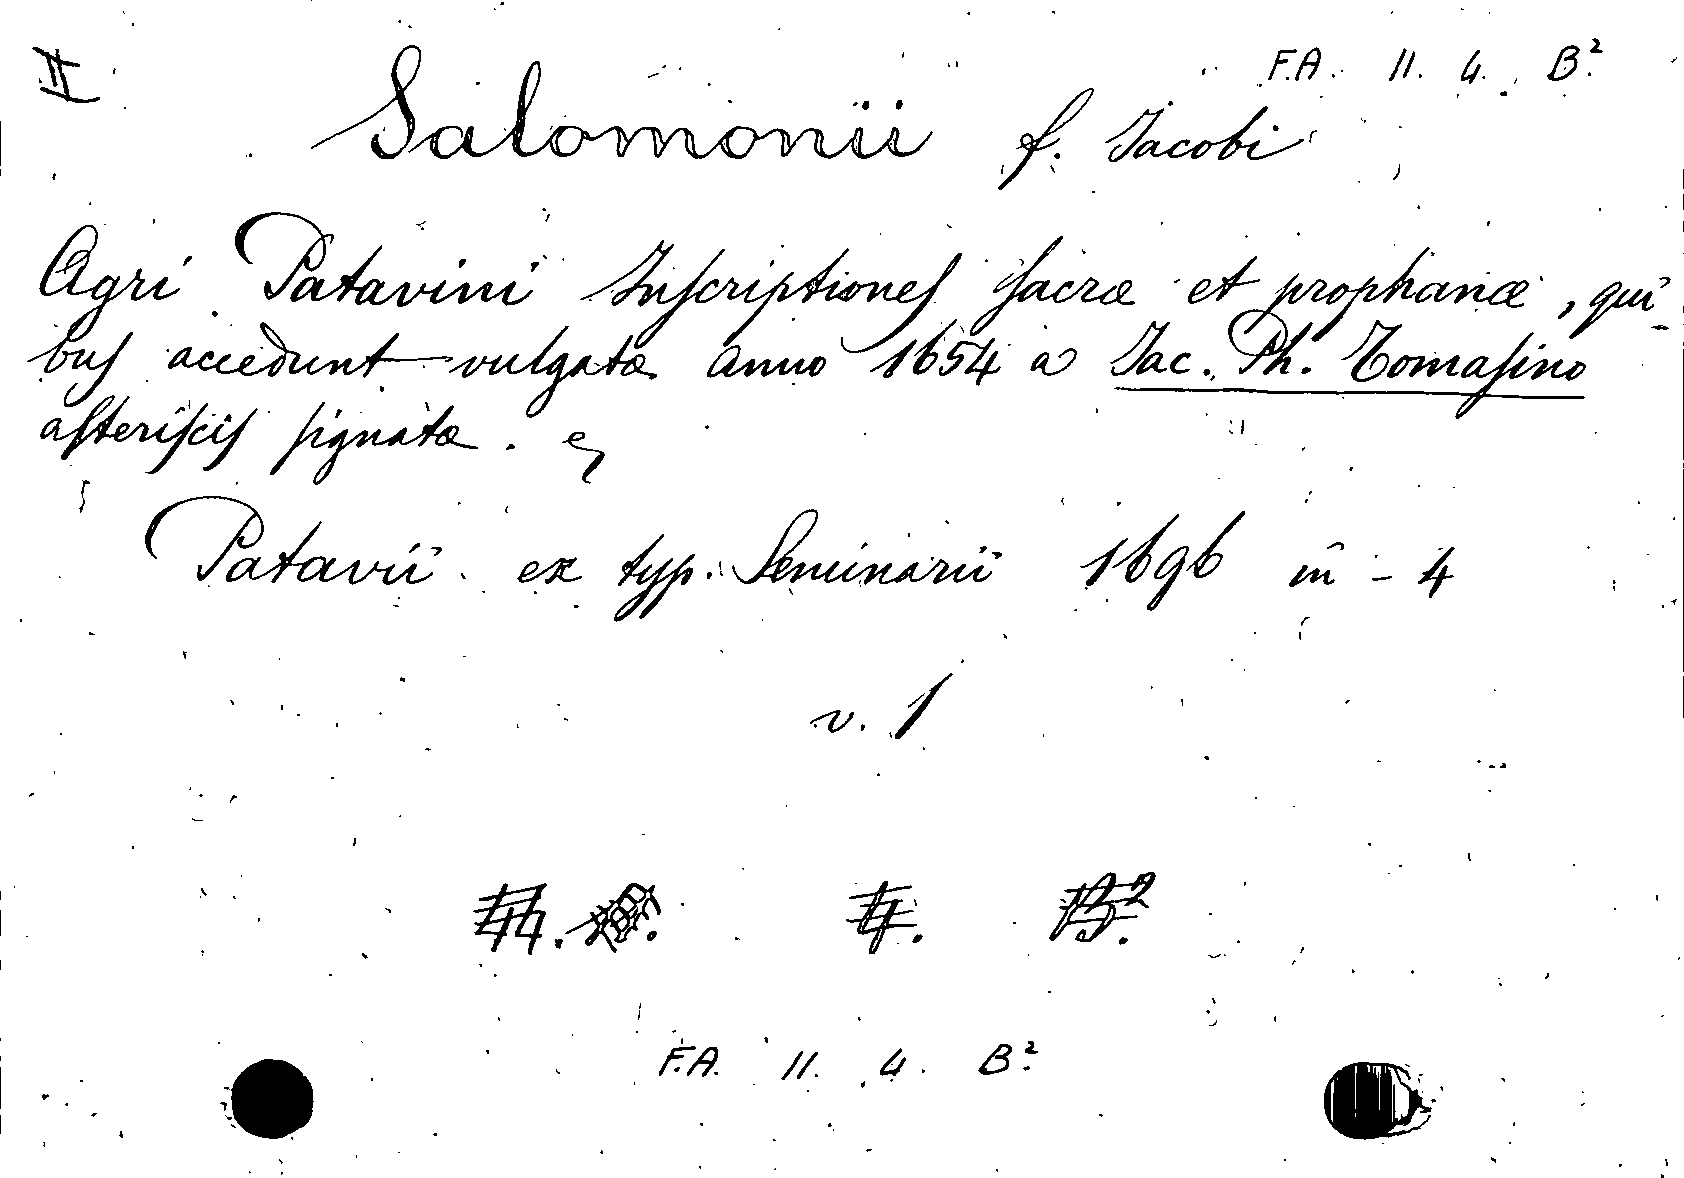 II
F.A. 11. 4. B.²
Salomonii f. Jacobi
Agri Patavini Inſcriptioneſ ſacræ et prophanæ, qui-
buſ accedunt vulgatæ anno 1654 a Jac. Ph. Tomaſino
aſteriſciſ ſignatæ.
Patavii ex typ. Seminarii 1696 in̄ - 4
v. 1
4. B.²
F.A. 11. 4. B.²